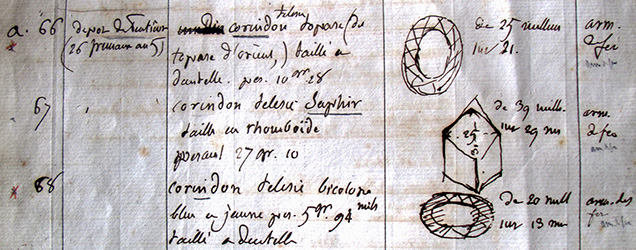 a. 66 depot de 26 frimaire an 5) corindon telesie topase (de
topase d'orient,) taillé a
dentelle. pes. 10 gr. 28
de 25 millim
sur 21.
arm.
2 fer
67 " " corindon telesie Saphir
taillé en rhomboïde
pesant 27 gr. 10
25
de 39 mill.
sur 29 ms
arm.
2 feo
68 corindon telesie bicolore
bleu et jaune pes. 5 gr. 94 mils
taillé a dentelle
de 20 mill
sur 13 ms
arm. des
fer